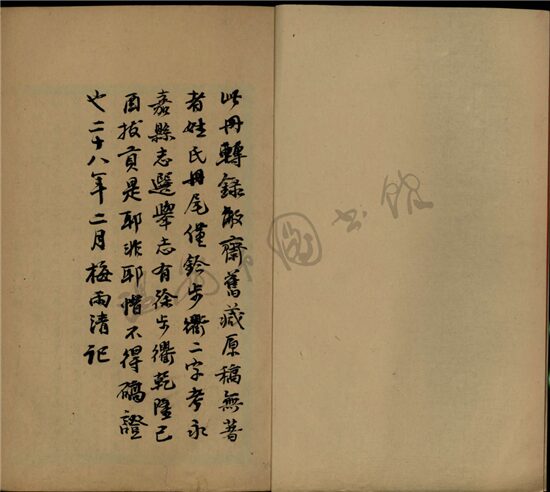 此冊轉錄敬齋舊藏原稿無著
者姓氏冊尾僅鈐步衢二字考永
嘉縣志選舉志有徐步衢乾隆己
酉拔貢是耶非耶惜不得碻證
也二十八年二月梅雨清記
圖書館